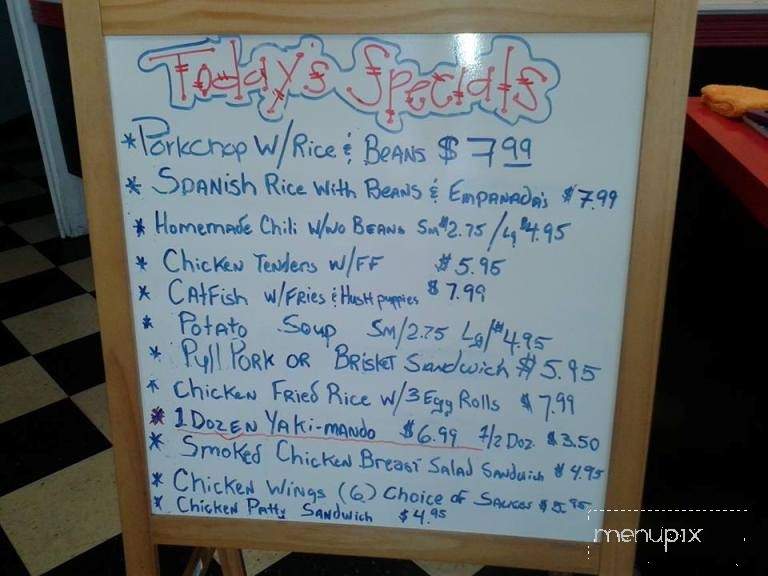 Today's Specials
* Porkchop W/Rice & Beans $7.99
* Spanish Rice with Beans & Empanada's $7.99
* Homemade Chili w/no Beans Sm $2.75/Lg $4.95
* Chicken Tenders w/FF $5.95
* Catfish w/Fries & Hush puppies $7.99
* Potato Soup Sm/2.75 Lg/$4.95
* Pull Pork or Brisket Sandwich $5.95
* Chicken Fried Rice w/3 Egg Rolls $7.99
* 1 Dozen Yaki-mando $6.99 1/2 Doz. $3.50
* Smoked Chicken Breast Salad Sandwich $4.95
* Chicken Wings (6) Choice of Sauces $5.95
* Chicken Patty Sandwich $4.95
menupix